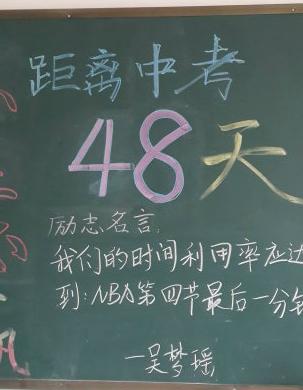 距离中考
48天
励志名言:
我们的时间利用率应达
到:NBA第四节最后一分钟
—吴梦瑶